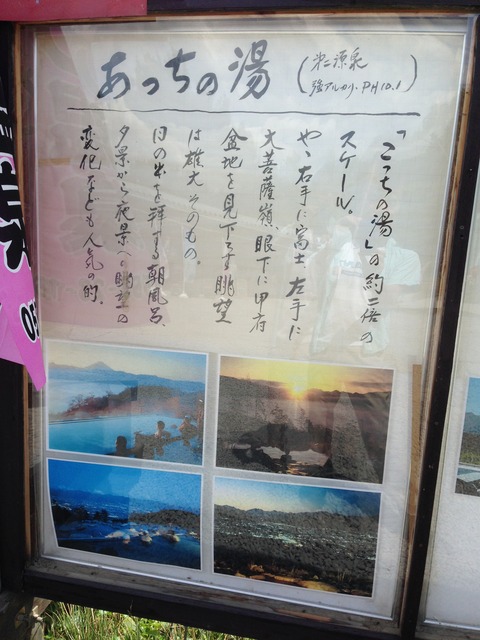 あっちの湯
(第二源泉
強アルカリ.PH10.1)
「こっちの湯」の約二倍の
スケール。
やゝ右手に富士、左手に
大菩薩嶺、眼下に甲府
盆地を見下ろす眺望
は雄大そのもの。
日の出を拝する朝風呂、
夕景から夜景への眺望の
変化なども人気の的。